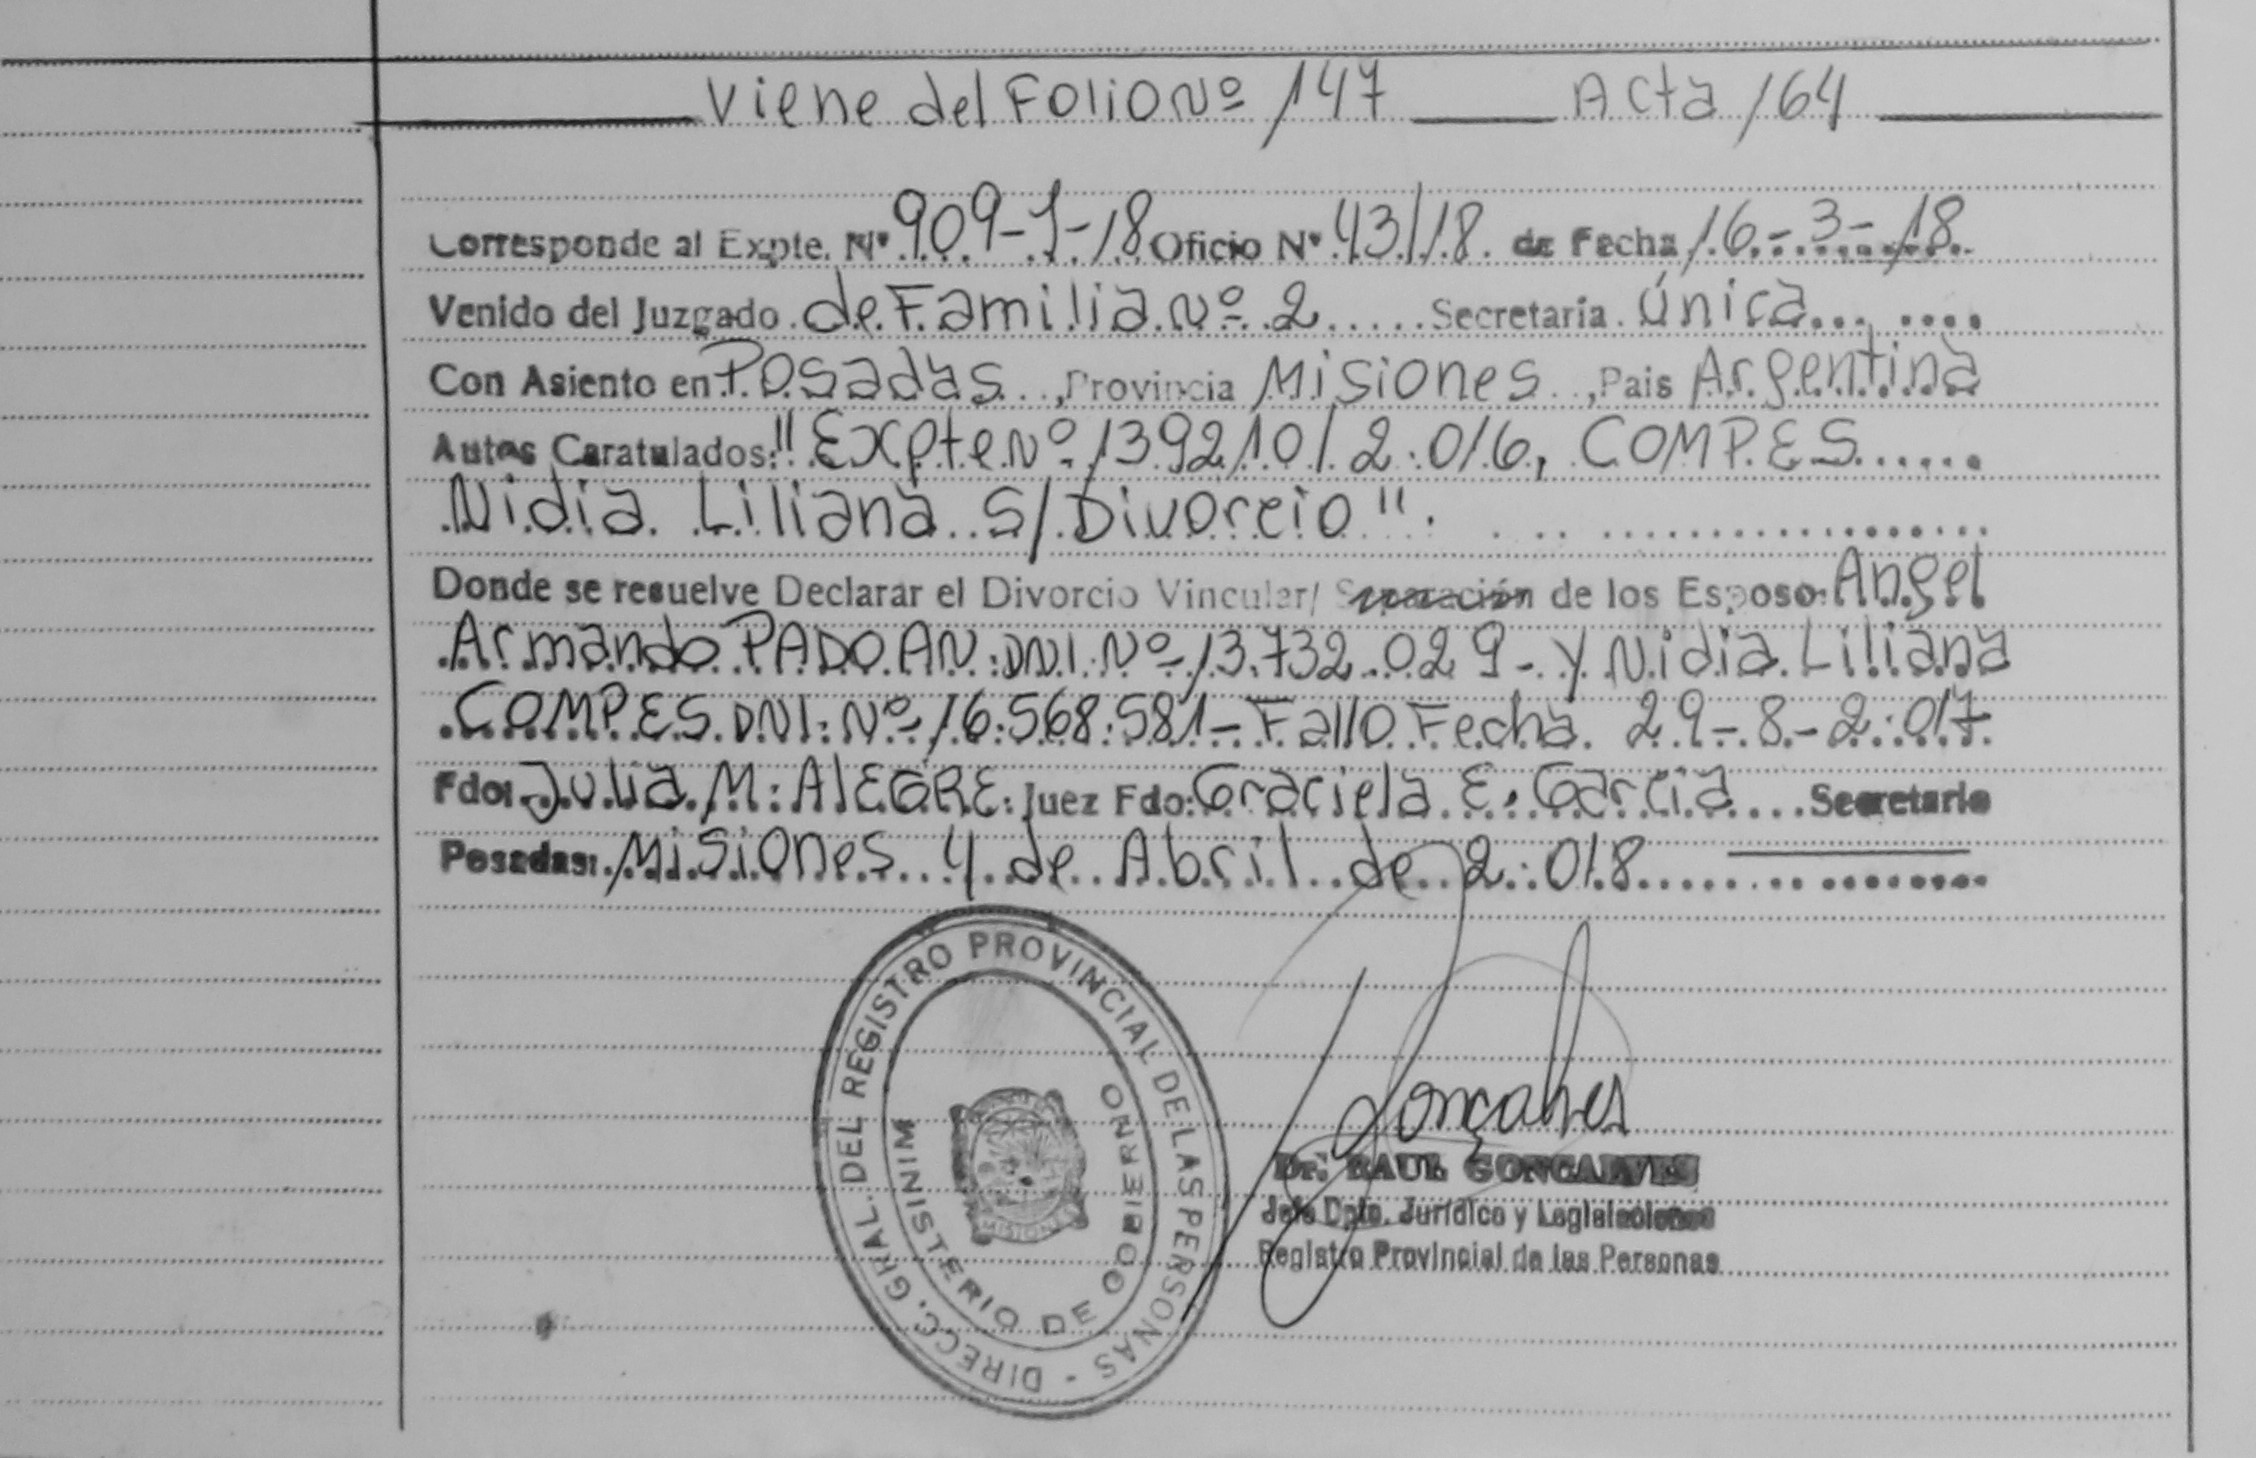 Viene del Folio Nº 147 Acta 164
Corresponde al Expte. Nº 909-J-18 Oficio Nº 43/18 de Fecha 16-3-18
Venido del Juzgado de Familia Nº 2 Secretaría única
Con Asiento en Posadas, Provincia Misiones, Pais Argentina
Autos Caratulados: "Expte Nº 139210/2.016, COMPES
Nidia Liliana s/Divorcio".
Donde se resuelve Declarar el Divorcio Vincular/ Separación de los Esposo: Angel
Armando PADOAN. DNI. Nº 13.732.029- y Nidia Liliana
COMPES DNI. Nº 16.568.581- Fallo Fecha 29-8-2.017
Fdo: Julia M. AlEGRE. Juez Fdo: Graciela E. Garcia Secretario
Posadas: Misiones 4 de Abril de 2.018
DIRECC. GRAL. DEL REGISTRO PROVINCIAL DE LAS PERSONAS -
MINISTERIO DE GOBIERNO
MISIONES
Gonçalves
Dr. RAUL GONCALVES
Jefe Dpto. Jurídico y Legislaciones
Registro Provincial de las Personas